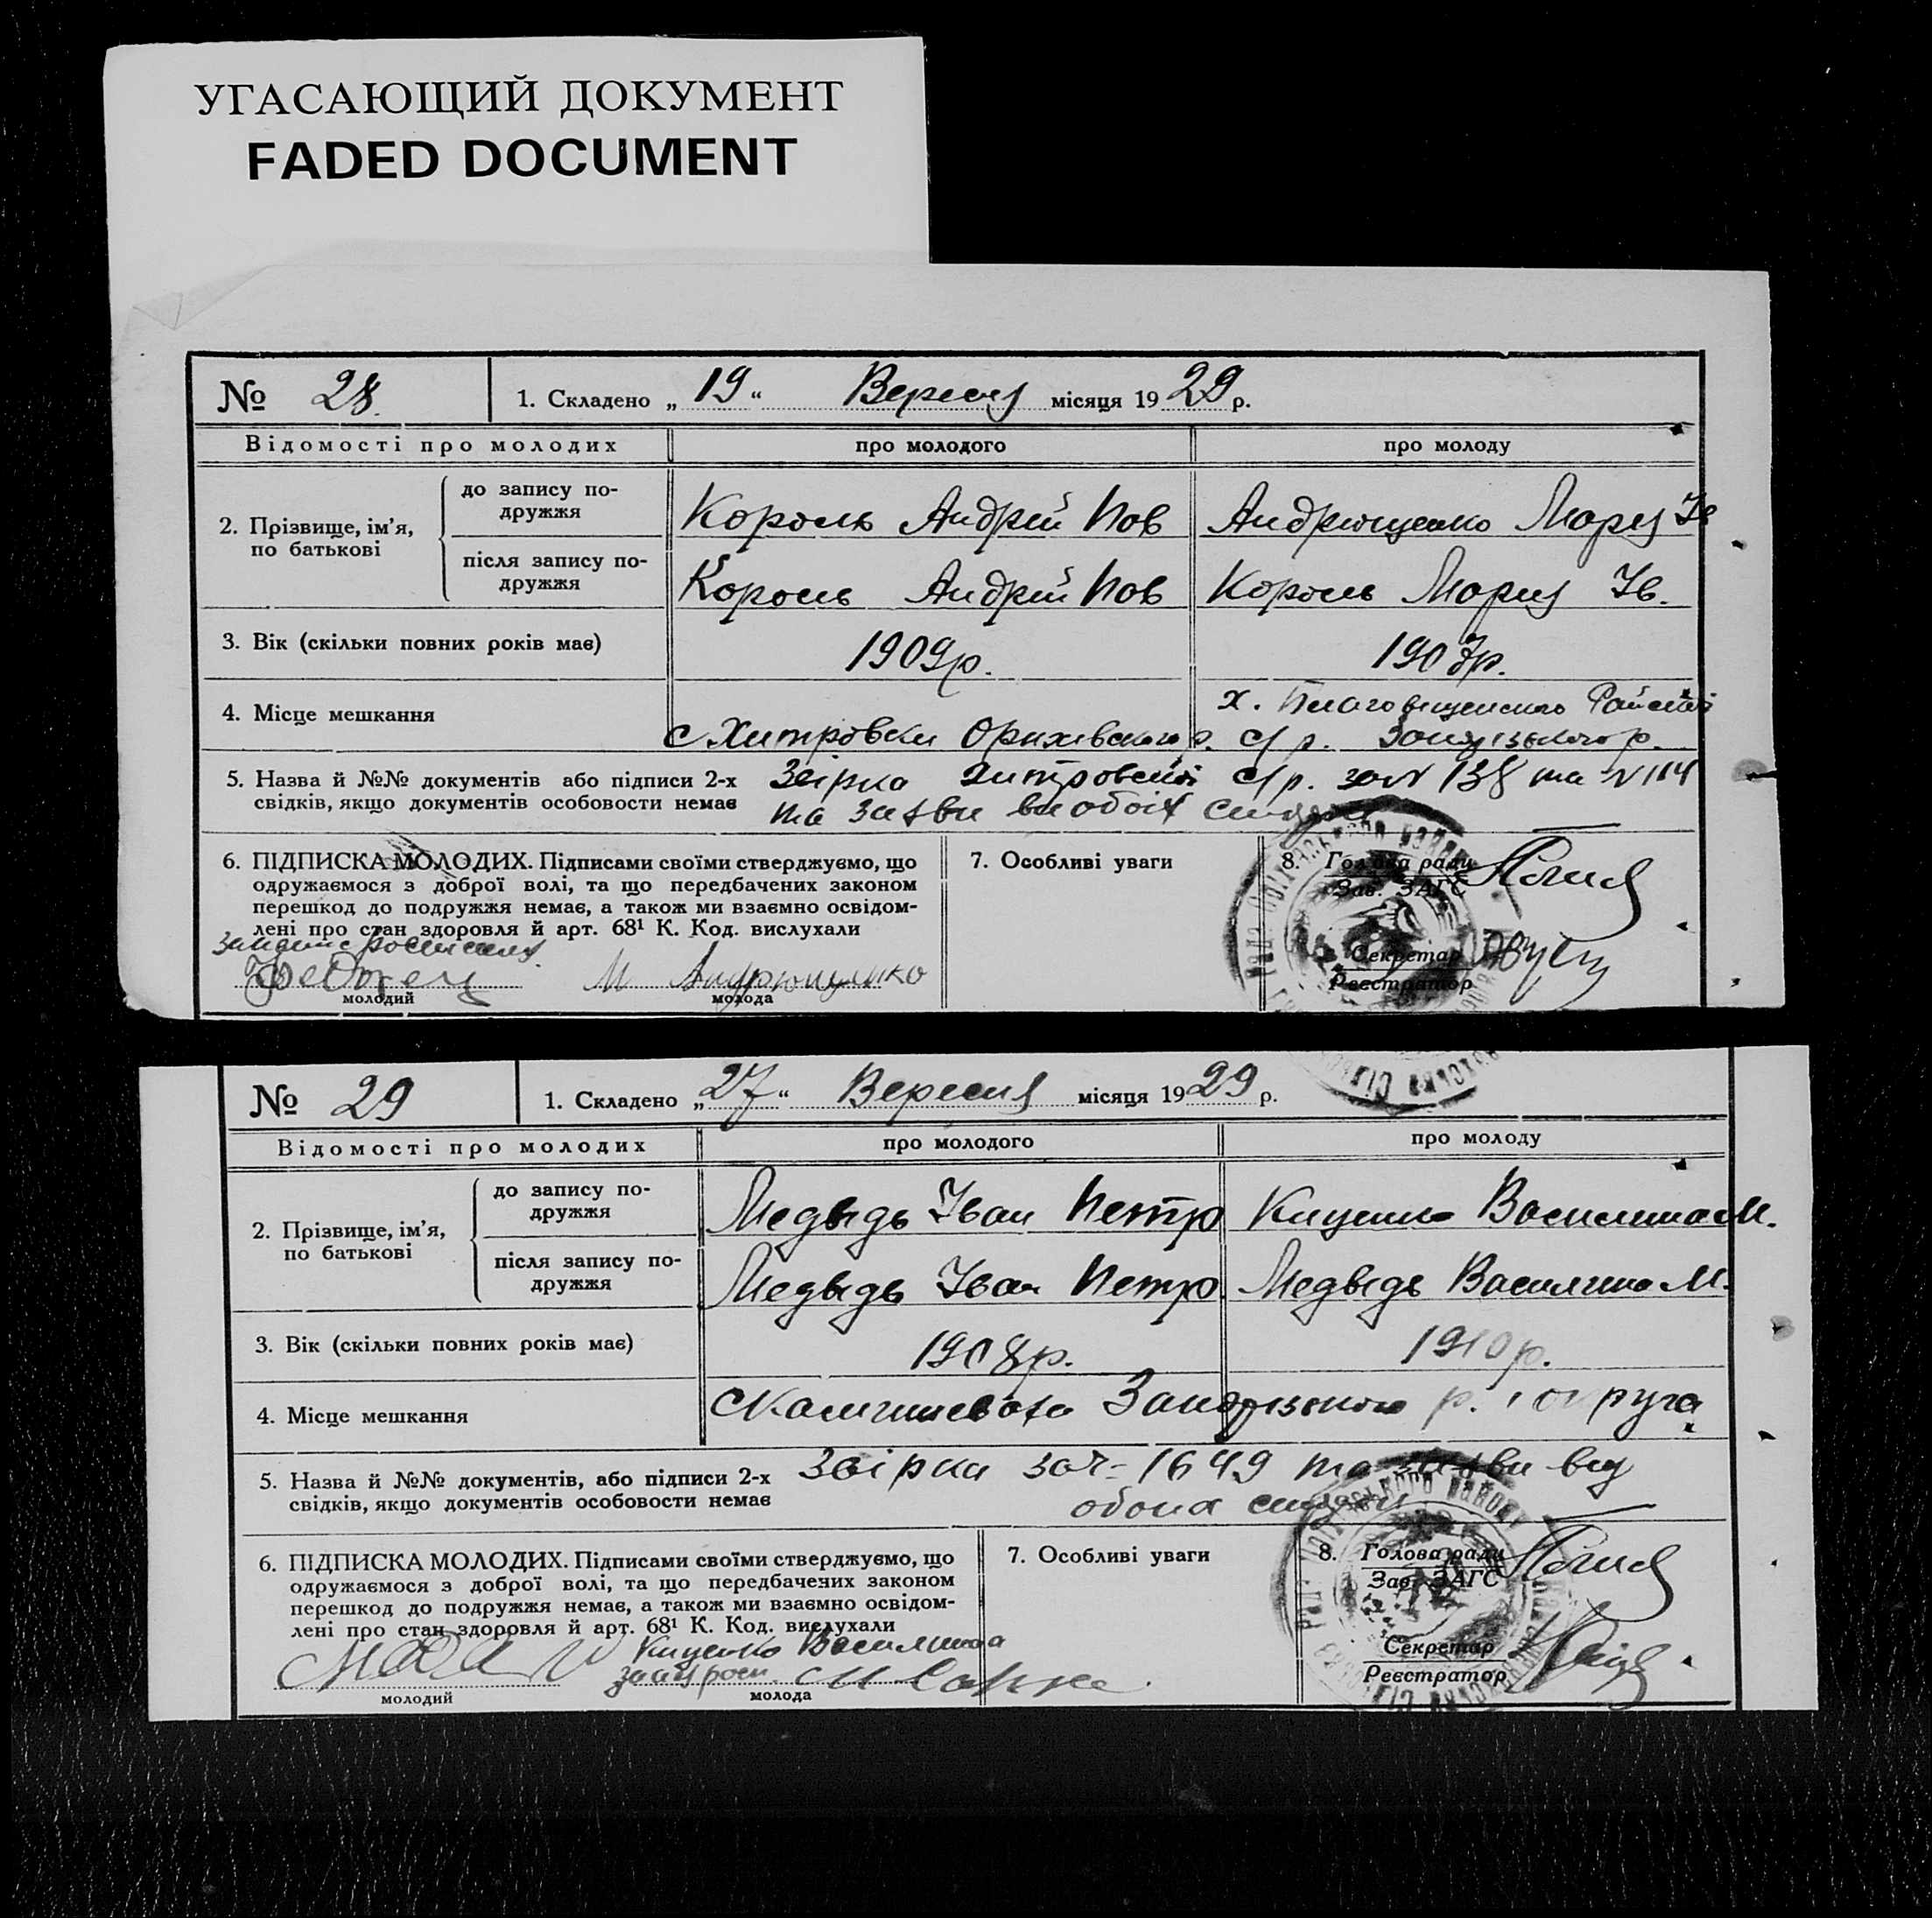 УГАСАЮЩИЙ ДОКУМЕНТ
FADED DOCUMENT
№ 28. 1. Складено „ 19 “ Вересня місяця 1929 р.
Відомості про молодих про молодого про молоду
2. Прізвище, ім’я, по батькові
до запису по-дружжя Король Андрій Пав Андрющенко Мария Ів
після запису по-дружжя Король Андрій Пав Король Мария Ів.
3. Вік (скільки повних років має) 1909р. 1907р.
х.
4. Місце мешкання с Хитровки Оріхивського р. с/р.
5. Назва й №№ документів або підписи 2-х Звірка с/р. за № 138 та № 114
свідків, якщо документів особовости немає та заяви
6. ПІДПИСКА МОЛОДИХ. Підписами своїми стверджуємо, що
одружаємося з доброї волі, та що передбачених законом
перешкод до подружжя немає, а також ми взаємно освідом-
лені про стан здоровля й арт. 68¹ К. Код. вислухали
М Андрющенко
молодий молода
7. Особливі уваги
8. Голова ради
Зав. ЗАГС
Секретар
Реєстратор
№ 29 1. Складено „ 27 “ Вересня місяця 1929 р.
Відомості про молодих про молодого про молоду
2. Прізвище, ім’я, по батькові
до запису по-дружжя Медвідь Іван Петр Киценко Василина М.
після запису по-дружжя Медвідь Іван Петр. Медвідь Василина М.
3. Вік (скільки повних років має) 1908р. 1910р.
4. Місце мешкання Запорізького р. округа
5. Назва й №№ документів, або підписи 2-х Звірка за ч- 1649 та заяви від
свідків, якщо документів особовости немає
6. ПІДПИСКА МОЛОДИХ. Підписами своїми стверджуємо, що
одружаємося з доброї волі, та що передбачених законом
перешкод до подружжя немає, а також ми взаємно освідом-
лені про стан здоровля й арт. 68¹ К. Код. вислухали
Киценко Василина
молодий молода
7. Особливі уваги
8. Голова ради
Зав. ЗАГС
Секретар
Реєстратор